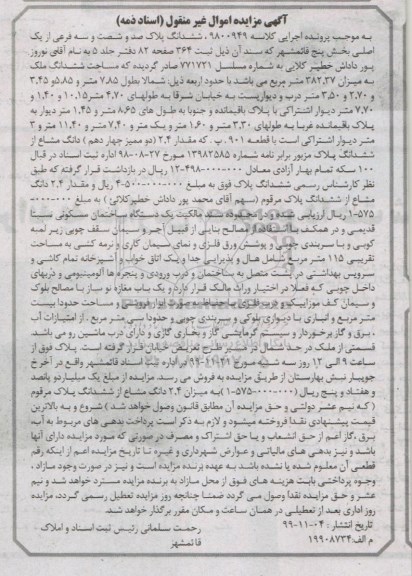 آگهی مزایده اموال غیر منقول (اسناد ذمه)
به موجب پرونده اجرایی کلاسه ۹۸۰۰۹۴۹، ششدانگ پلاک صد و شصت و سه فرعی از یک
اصلی بخش پنج قائمشهر که سند آن ذیل ثبت ۳۶۴ صفحه ۸۲ دفتر جلد ۵ به نام آقای نوروز
پور داداش خطیر کلایی به شماره مسلسل ۷۷۱۷۲۱ صادر گردیده که مساحت ششدانگ ملک
به میزان ۳۸۲،۳۷ متر مربع می باشد با حدود اربعه ذیل: شمالا بطول ۷،۸۵ متر و ۵،۸۵و ۳،۴۵
و ۲،۷۰ و ۳،۵۰ متر درب و دیواریست به خیابان شرقا به طولهای ۴،۷۰ متر۱۰،۱۵ و ۱،۴۰ و
۷،۷۰ متر دیوار اشتراکی با پلاک باقیمانده و جنوبا به طول های ۸،۶۵ متر و ۱،۴۵ متر دیوار به
پلاک باقیمانده غربا به طولهای ۳،۳۰ متر و ۱،۶۰ متر و یک متر و ۷،۴۰ متر و ۱۱،۴۰ متر و ۳
متر دیوار اشتراکی است با قطعه ۹۰۱ ب. که مقدار ۲،۴ (دو ممیز چهار دهم) دانگ مشاع از
ششدانگ پلاک مزبور برابر نامه شماره ۱۳۹۸۲۵۸۵ مورخ ۲۷-۰۸-۹۸ اداره ثبت اسناد در قبال
۱۰۰ سکه تمام بهار آزادی معادل ۰۰۰-۰۰۰-۴۹۸-۱۲ ریال در بازداشت قرار گرفته که طبق
نظر کارشناس رسمی ششدانگ پلاک فوق به مبلغ ۰۰۰-۰۰۰-۵۰۰-۴ ریال و مقدار ۲،۴ دانگ
مشاع از ششدانگ پلاک مرقوم (سهم آقای محمد پور داداش خطیرکلائی) به مبلغ ۰۰۰-
۵۷۵-۱ ریال ارزیابی شده و در محدوده سند مالکیت یک دستگاه ساختمان مسکونی نسبتا
قدیمی و در همکف با استفاده از مصالح بنایی از قبیل آجر و سیمان سقف چوبی زیر لمبه
کوبی و با سربندی چوبی و پوشش ورق فلزی و نمای سیمان کاری و نرمه کشی به مساحت
تقریبی ۱۱۵ متر مربع شامل هال و پذیرایی جدا و یک اتاق خواب و آشپزخانه تمام کاشی و
سرویس بهداشتی در پشت متصل به ساختمان و درب ورودی و پنجره ها آلومینیومی و دربهای
داخل چوبی که فعلا در اختیار وراث مالک قرار دارد و یک باب مغازه نو ساز با مصالح بلوک
و سیمان کف موزاییک و درب فلزی با حیاط به صورت انبار و مساحت حدودا بیست
متر مربع و انباری با دیواری بلوکی و سربندی چوبی و حدودا سی متر مربع. از امتیازات آب
، برق و گاز برخوردار و سیستم گرمایشی گاز و بخاری گازی و دارای درب ماشین رو می باشد.
قسمتی از ملک در حد شمال در طرح تعریض خیابان قرار گرفته است. پلاک فوق از
ساعت ۹ الی ۱۲ روز سه شنبه مورخ ۲۱-۱۱-۹۹ در اداره ثبت اسناد قائمشهر واقع در آخرخ
جویبار نبش بهارستان از طریق مزایده به فروش می رسد. مزایده از مبلغ یک میلیارد و پانصد
و هفتاد و پنج ریال (۰۰۰-۰۰۰-۵۷۵-۱)به میزان ۲،۴ دانگ مشاع از ششدانگ پلاک مرقوم
(که نیم عشر دولتی و حق مزایده آن مطابق قانون وصول خواهد شد) شروع و به بالاترین
قیمت پیشنهادی نقدا فروخته میشود و لازم به ذکر است پرداخت بدهی های مربوط به آب،
برق، گاز اعم از حق انشعاب و یا حق اشتراک و مصرف در صورتی که مورد مزایده دارای آنها
باشد و نیز بدهی های مالیاتی و عوارض شهرداری و غیره تا تاریخ مزایده اعم از اینکه رقم
قطعی آن معلوم شده یا نشده باشد به عهده برنده مزایده است و نیز در صورت وجود مازاد،
وجوه پرداختی بابت هزینه های فوق از محل مازاد به برنده مزایده مسترد خواهد شد و نیم
عشر و حق مزایده نقدا وصول می گردد ضمنا چنانچه روز مزایده تعطیل رسمی گردد، مزایده
روز اداری بعد از تعطیلی در همان ساعت و مکان مقرر برگزار خواهد شد.
تاریخ انتشار: ۰۴-۱۱-۹۹
رحمت سلمانی رئیس ثبت اسناد و املاک
م الف:۱۹۹۰۸۷۳۴
قائمشهر